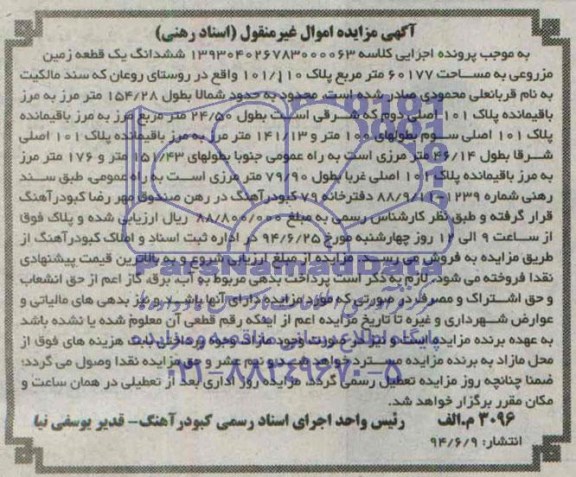 آگهی مزایده اموال غیرمنقول (اسناد رهنی)
به موجب پرونده اجرایی کلاسه ۱۳۹۳۰۴۰۲۶۷۸۳۰۰۰۰۶۳ ششدانگ یک قطعه زمین
مزروعی به مساحت ۶۰۱۷۷ متر مربع پلاک ۱۰۱/۱۱۰ واقع در روستای روعان که سند مالکیت
به نام قربانعلی محمودی صادر شده است. محدود به حدود شمالا بطول ۱۵۴/۲۸ متر مرز به مرز
باقیمانده پلاک ۱۰۱ اصلی دوم که شرقی است بطول ۲۴/۵۰ متر مربع مرز به مرز باقیمانده
پلاک ۱۰۱ اصلی سوم بطولهای ۱۰۰ متر و ۱۴۱/۱۳ متر مرز به مرز باقیمانده پلاک ۱۰۱ اصلی
شرقا بطول ۴۶/۱۴ متر مرزی است به راه عمومی جنوبا بطولهای ۱۵۱/۴۳ متر و ۱۷۶ متر مرز
به مرز باقیمانده پلاک ۱۰۱ اصلی غربا بطول ۷۹/۹۰ متر مرزی است به راه عمومی. طبق سند
رهنی شماره ۱۲۳۹ دفترخانه ۷۹ کبودرآهنگ در رهن صندوق مهر رضا کبودرآهنگ
قرار گرفته و طبق نظر کارشناس رسمی به مبلغ ۸۸/۸۰۰/۰۰۰ ریال ارزیابی شده و پلاک فوق
از ساعت ۹ الی ۱۲ روز چهارشنبه مورخ ۹۴/۶/۲۵ در اداره ثبت اسناد و املاک کبودرآهنگ از
طریق مزایده به فروش می رسد. مزایده از مبلغ ارزیابی شروع و به بالاترین قیمت پیشنهادی
نقدا فروخته می شود. لازم به ذکر است پرداخت بدهی مربوط به آب، برق، گاز اعم از حق انشعاب
و حق اشتراک و مصرف در صورتی که مورد مزایده دارای آنها باشد و نیز بدهی های مالیاتی و
عوارض شهرداری و غیره تا تاریخ مزایده اعم از اینکه رقم قطعی آن معلوم شده یا نشده باشد
به عهده برنده مزایده است و نیز در صورت وجود مازاد وجوه پرداختی بابت هزینه های فوق از
محل مازاد به برنده مزایده مسترد خواهد شد و نیم عشر و حق مزایده نقدا وصول می گردد.
ضمنا چنانچه روز مزایده تعطیل رسمی گردد، مزایده روز اداری بعد از تعطیلی در همان ساعت و
مکان مقرر برگزار خواهد شد.
۳۰۹۶ م.الف رئیس واحد اجرای اسناد رسمی کبودرآهنگ- قدیر یوسفی نیا
انتشار: ۹۴/۶/۹
ParsNamadData
پایگاه اطلاع رسانی مناقصه و مزایده
۰۲۱-۸۸۳۴۹۶۷۰-۵